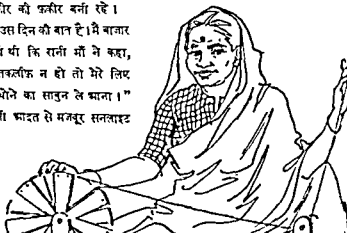 की फ़कीर बनी रहे।
उस दिन की बात है। मैं बाजार
थी कि रानी माँ ने कहा,
तकलीफ़ न हो तो मेरे लिए
धोने का साबुन ले आना।"
आदत से मजबूर सनलाइट